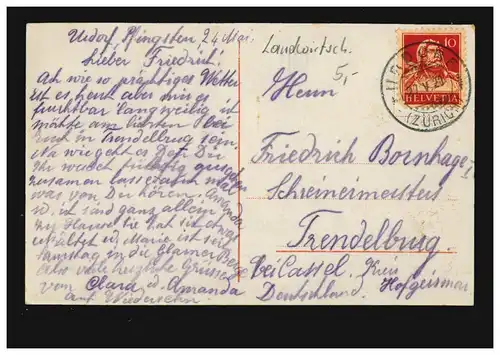 Urdorf, Pfingsten, 24 Mai.
Lieber Friedrich!
Ach wie so prächtiges Wetter
ist es heut aber mir es
furchtbar langweilig ist
möchte am liebsten bei
Euch in Trendelburg sein.
Na wie geht es Dir
Ihr werdet tüchtig
zusammen mal
was von Dir hören. Amanda
u. ist sind ganz allein
zu Hause sie hat sich etwas
erkältet u. Marie ist seit
Samstag in die Glarner Berge
Also viele herzliche Grüsse
von Clara u. Amanda
auf Wiedersehn.
Landwirtsch.
5,-
10
HELVETIA
(ZÜRICH)
Herrn
Friedrich Bornhage
Schreinermeisters
Trendelburg.
bei Cassel. Kreis
Deutschland. Hofgeismar